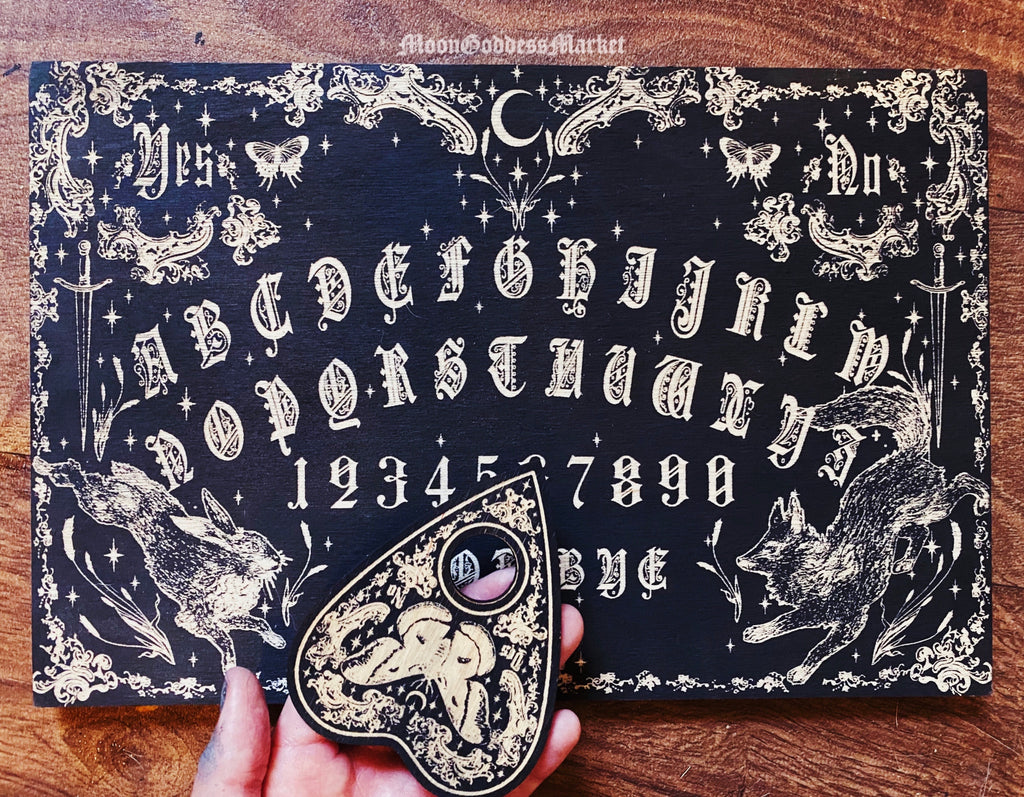 MoonGoddessMarket
Yes No
A B C D E F G H I J K L M
N O P Q R S T U V W X Y Z
1 2 3 4 5 7 8 9 0
BYE